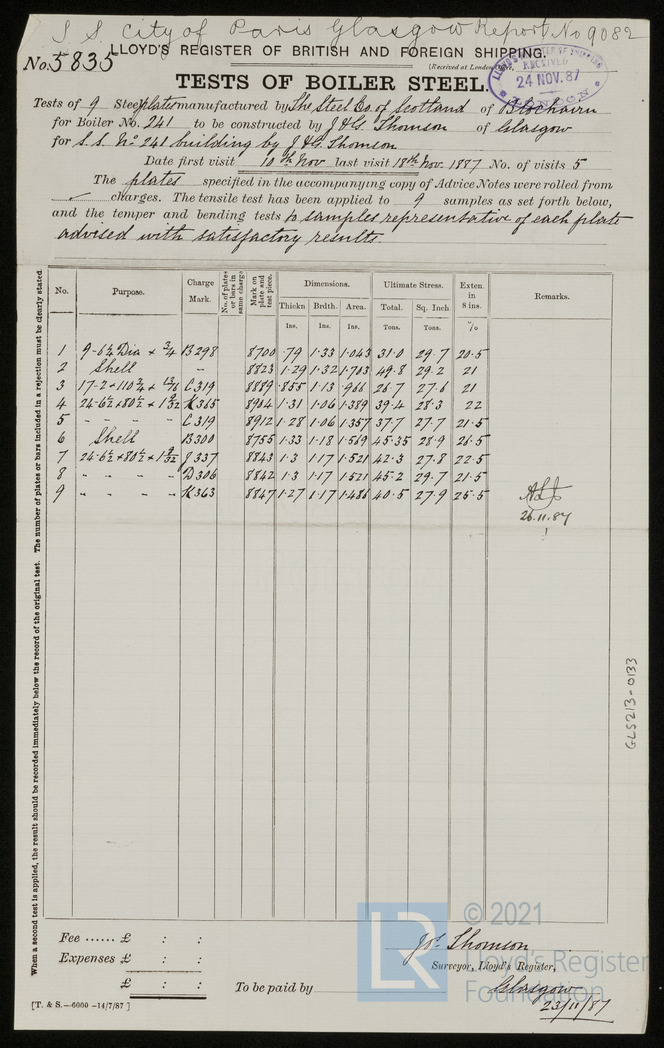 S. S. City of Paris Glasgow Report No 9082
No. 5835
LLOYD'S REGISTER OF BRITISH AND FOREIGN SHIPPING.
(Received at London
RECEIVED
24 NOV. 87
LONDON
TESTS OF BOILER STEEL.
Tests of 9 Steel plates manufactured by The Steel Co. of Scotland of Blochairn
for Boiler No. 241 to be constructed by J & G. Thomson of Glasgow
for S. S. No 241 building by J & G. Thomson
Date first visit 10th Nov last visit 18th Nov. 1887 No. of visits 5
The plates specified in the accompanying copy of Advice Notes were rolled from
charges. The tensile test has been applied to 9 samples as set forth below,
and the temper and bending tests to samples representative of each plate
advised with satisfactory results.
No. Purpose. Charge Mark. No. of plates or bars in same charge Mark on plate and test piece. Dimensions. Ultimate Stress. Exten. in 8 ins. Remarks.
Thickn Brdth. Area. Total. Sq. Inch
Ins. Ins. Ins. Tons. Tons. %
1 9-6½ Dia x ¾ B298 8700 .79 1.33 1.043 31.0 29.7 20.5
2 Shell " 8823 1.29 1.32 1.703 49.8 29.2 21
3 17-2 x 110¾ x 13/16 C319 8889 .855 1.13 .966 26.7 27.6 21
4 24-6½ x 80½ x 1 9/32 K365 8904 1.31 1.06 1.389 39.4 28.3 22
5 " " " " C319 8912 1.28 1.06 1.357 37.7 27.7 21.5
6 Shell B300 8755 1.33 1.18 1.569 45.35 28.9 26.5
7 24-6½ x 80½ x 1 9/32 J337 8843 1.3 1.17 1.521 42.3 27.8 22.5
8 " " " " D306 8842 1.3 1.17 1.521 45.2 29.7 21.5
9 " " " " K363 8847 1.27 1.17 1.486 40.5 27.9 25.5
26.11.87
When a second test is applied, the result should be recorded immediately below the record of the original test. The number of plates or bars included in a rejection must be clearly stated.
GLS213-0133
Fee ...... £ : :
Expenses £ : :
£ : :
To be paid by
Jos. Thomson
Surveyor, Lloyd's Register,
Glasgow
23/11/87
[T. & S.—6000 —14/7/87]
LR
© 2021
Lloyd's Register
Foundation